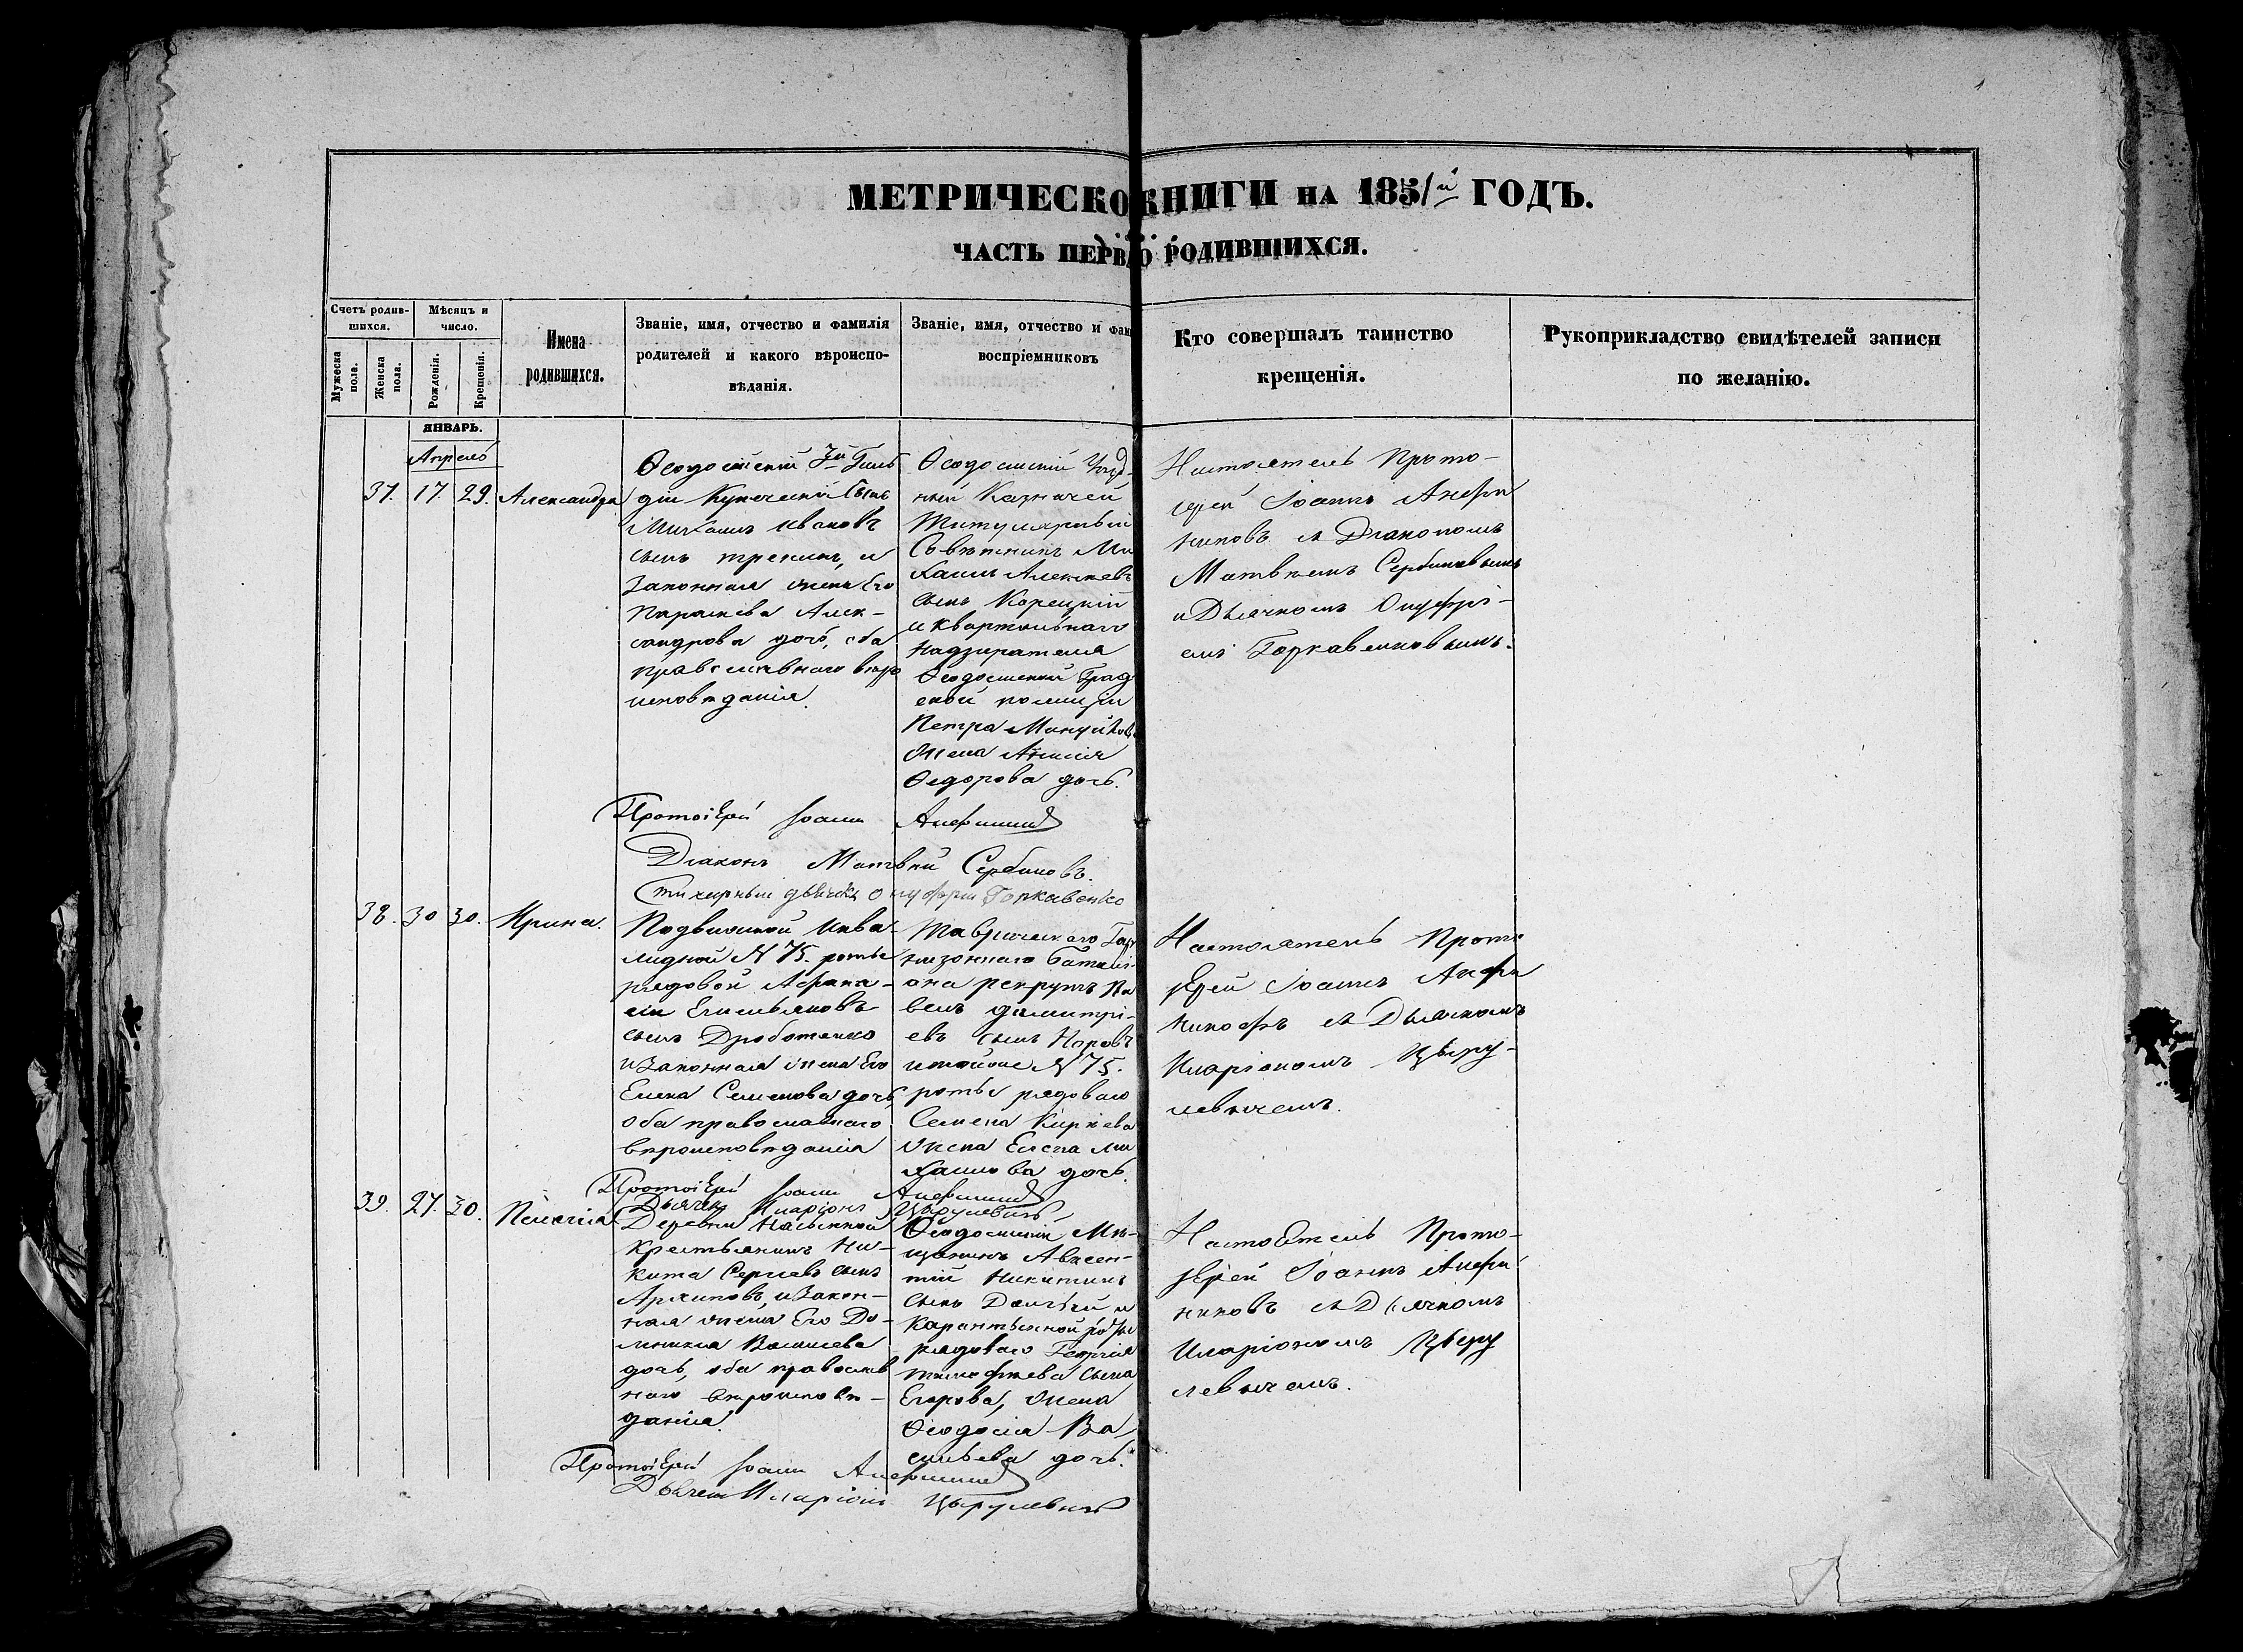 МЕТРИЧЕСКО КНИГИ НА 1851й ГОДЪ.
ЧАСТЬ ПЕРВ О РОДИВШИХСЯ.
Счетъ родив-
шихся.
Мужеска
пола.
Женска
пола.
Мѣсяцъ и
число.
Рожденія.
Крещенія.
Имена
родившихся.
Званіе, имя, отчество и фамилія
родителей и какого вѣроиспо-
вѣданія.
Званіе, имя, отчество и фам
воспріемниковъ
Кто совершалъ таинство
крещенія.
Рукоприкладство свидѣтелей записи
по желанію.
ЯНВАРЬ.
Апрель
37. 17. 29. Александра
Ѳеодосійскій 3й Гиль
діи Купеческій Сынъ
Михаилъ Ивановъ
сынъ и
законная жена Его
Параскева Алек-
сандрова дочь, оба
православного вѣро
исповѣданія.
Ѳеодосійскій Уезд-
ный Казначей
Титулярный
Совѣтникъ Ми
хаилъ Алексѣевъ
сынъ Корецкій
и квартальнаго
надзирателя
Ѳеодосійской Град
ской полиціи
Петра
жена
Ѳедорова дочь.
Настоятель Прото-
іерей Іоаннъ Анфи
ниновъ съ Діакономъ
Матвѣемъ Сербиновымъ
и Дьячкомъ Онуфрі-
емъ Горкавенковымъ.
Протоіерей Іоаннъ
Діаконъ Матвѣй Сербиновъ.
Стихарный дьячекъ Онуфрій Горкавенко
38. 30 30. Ирина.
Подвижной Инва-
лидной N 75. роты
рядовой Афана-
сій Емельяновъ
сынъ Дроботенко
и законная жена Его
Елена Семенова дочь,
оба православнаго
вѣроисповѣданія
Таврическаго Гар
низоннаго Баталі-
она рекрутъ Па
велъ Димитрі-
евъ сынъ
и тойже N 75.
роты рядоваго
Семена Кирѣева
жена Елена Ми
хаилова дочь.
Настоятель Прото
іерей Іоаннъ Анфи
ниновъ съ Дьячкомъ
Иларіономъ Цыру-
левичемъ.
Протоіерей Іоаннъ
Дьячекъ Иларіонъ Цырулевичъ
39. 27. 30. Пелагія
Деревни Насыпкой
крестьянинъ Ни-
кита Сергѣевъ сынъ
Архиповъ, и закон-
ная жена Его До-
мникія Василіева
дочь, оба православ
наго вѣроисповѣ-
данія.
Ѳеодосійскій Мѣ-
щанинъ Авксен-
тій Никитинъ
сынъ и
Карантинной роты
рядоваго Георгія
Тимофѣева сына
Егорова, жена
Ѳеодосія Ва
сильева дочь.
Настоятель Прото-
іерей Іоаннъ Анфи
ниновъ съ Дьячкомъ
Иларіономъ Цыру
левичемъ.
Протоіерей Іоаннъ
Дьячекъ Иларіонъ Цырулевичъ